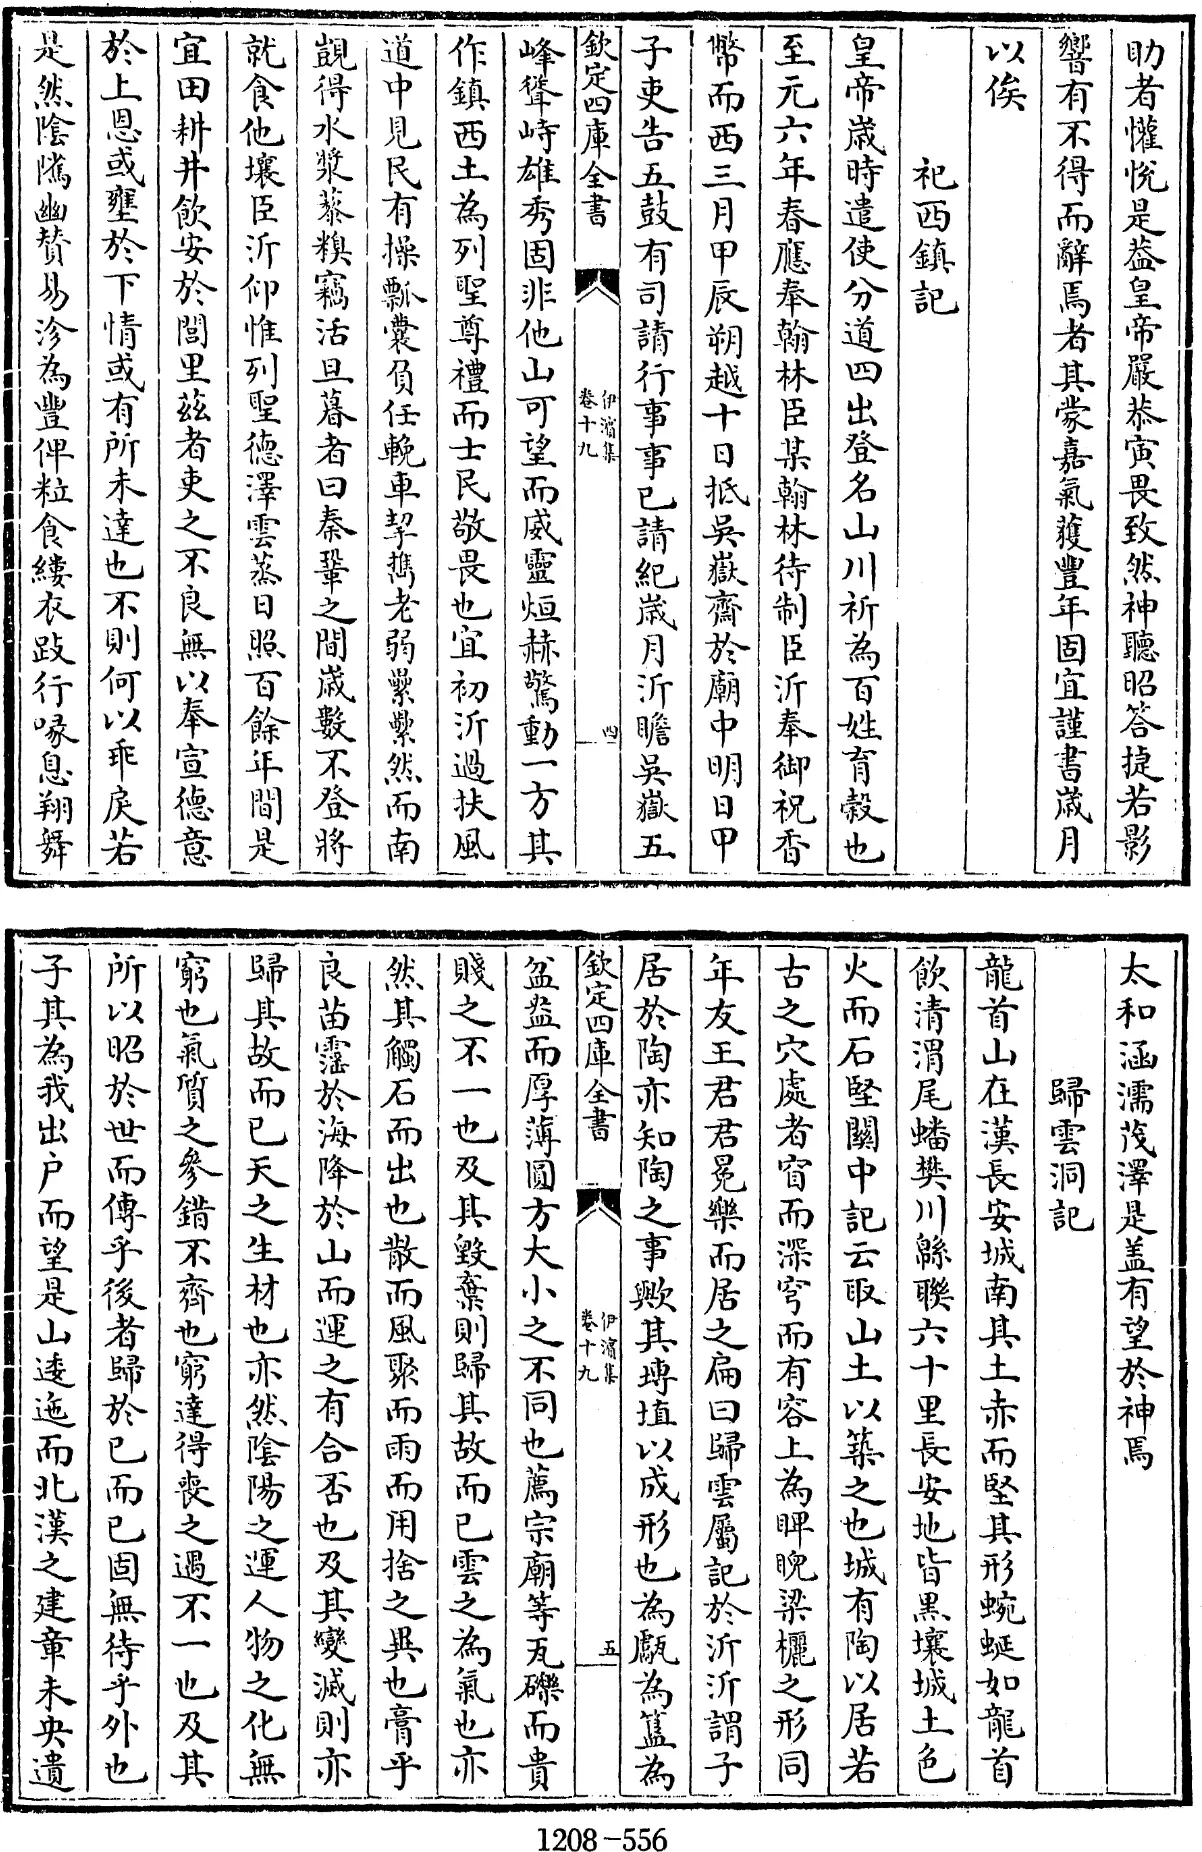 助者懽恱是葢皇帝嚴恭寅畏致然神聽昭答捷若影
響有不得而辭焉者其蒙嘉氣䕶豐年固宜謹書嵗月
以俟
祀西鎮記
皇帝嵗時遣使分道四出登名山川祈為百姓育穀也
至元六年春應奉翰林臣某翰林待制臣沂奉御祝香
幣而西三月甲辰朔越十日抵吳嶽齋於廟中明日甲
子吏告五鼓有司請行事事已請紀嵗月沂瞻吳嶽五
欽定四庫全書
伊濱集
卷十九
四
峰聳峙雄秀固非他山可望而威靈烜赫驚動一方其
作鎮西土為列聖尊禮而士民敬畏也宜初沂過扶風
道中見民有操瓢囊負任輓車挈攜老弱纍纍然而南
覬得水漿藜糗竊活旦暮者曰秦鞏之間嵗數不登將
就食他壤臣沂仰惟列聖德澤雲蒸日照百餘年間是
宜田耕井飲安於閭里兹者吏之不良無以奉宣德意
於上恩或壅於下情或有所未達也不則何以乖戾若
是然隂隲幽贊易沴為豐俾粒食縷衣跂行喙息翔舞
太和涵濡茂澤是盖有望於神焉
歸雲洞記
龍首山在漢長安城南其土赤而堅其形蜿蜒如龍首
飲清渭尾蟠樊川緜聯六十里長安地皆黒壤城土色
火而石堅闗中記云取山土以築之也城有陶以居若
古之穴處者窅而深穹而有容上為睥睨梁欐之形同
年友王君君冕樂而居之扁曰歸雲屬記於沂沂謂子
居於陶亦知陶之事歟其塼埴以成形也為甗為簋為
欽定四庫全書
伊濱集
卷十九
五
盆盎而厚薄圓方大小之不同也薦宗廟等瓦礫而貴
賤之不一也及其毀棄則歸其故而已雲之為氣也亦
然其觸石而出也散而風聚而雨而用捨之異也膏乎
良苗霪於海降於山而運之有合否也及其變滅則亦
歸其故而已天之生材也亦然隂陽之運人物之化無
窮也氣質之參錯不齊也窮達得喪之遇不一也及其
所以昭於世而傳乎後者歸於已而已固無待乎外也
子其為我出户而望是山逶迤而北漢之建章未央遺
1208-556